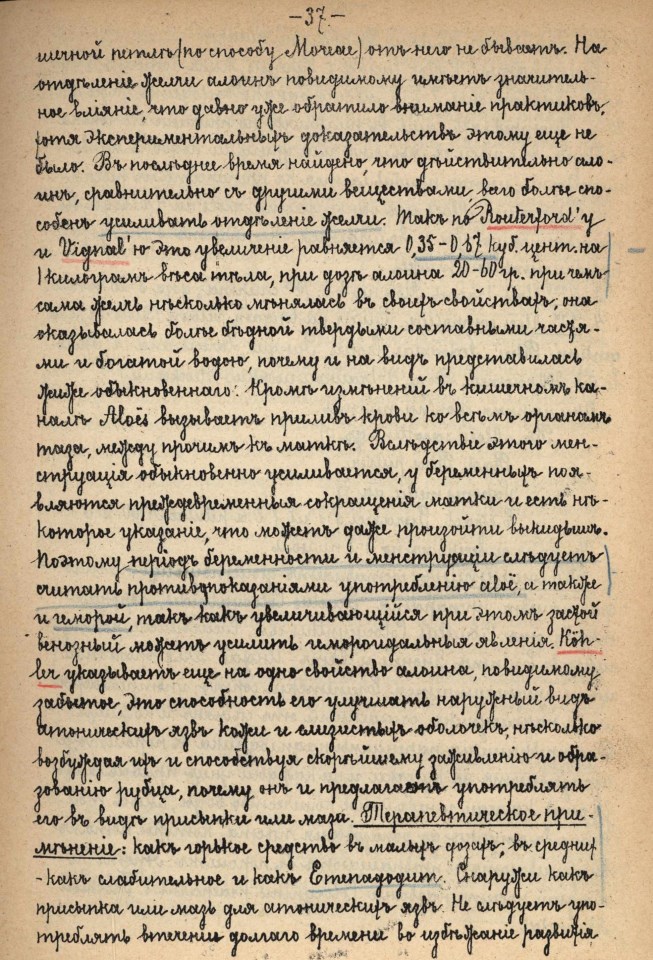 -37-
шечной петлѣ (по способу Мочеае) отъ него не бываетъ. На
отдѣленіе желчи алоинъ повидимому имѣетъ значитель-
ное вліяніе, что давно уже обратило вниманіе практиковъ,
хотя экспериментальныхъ доказательствъ этому еще не
было. Въ послѣднее время найдено, что дѣйствительно ало-
инъ, сравнительно съ другими веществами, всего болѣе спо-
собенъ усиливать отдѣленіе желчи. Такъ по Routerford'у
и Vignal'ю это увеличеніе равняется 0,35-0,67 куб. цент. на
1 килограмъ вѣса тѣла, при дозѣ алоина 20-60 гр. при чемъ
сама желчь нѣсколько мѣнялась въ своихъ свойствахъ; она
оказывалась болѣе бѣдной твердыми составными частя-
ми и богатой водою, почему и на видъ представилась
жиже обыкновеннаго. Кромѣ измѣненій въ кишечномъ ка-
налѣ Aloës вызываетъ приливъ крови ко всѣмъ органамъ
таза, между прочимъ къ маткѣ. Вслѣдствіе этого мен-
струація обыкновенно усиливается, у беременныхъ поя-
вляются преждевременныя сокращенія матки и есть нѣ-
которое указаніе, что можетъ даже произойти выкидышъ.
Поэтому періодъ беременности и менструаціи слѣдуетъ
считать противопоказаніями употребленію aloë, а также
и геморой, такъ какъ увеличивающійся при этомъ застой
венозный можетъ усилить гемороидальныя явленія. Köh-
ler указываетъ еще на одно свойство алоина, повидимому
забытое, это способность его улучшать наружный видъ
атоническихъ язвъ кожи и слизистыхъ оболочекъ, нѣсколько
возбуждая ихъ и способствуя скорѣйшему заживленію и обра-
зованію рубца, почему онъ и предлагаетъ употреблять
его въ видѣ присыпки или мази. Терапевтическое при-
мѣненіе: какъ горькое средство въ малыхъ дозахъ; въ среднихъ
-какъ слабительное и какъ Етепадодит. Снаружи какъ
присыпка или мазь для атоническихъ язвъ. Не слѣдуетъ упо-
треблять втеченіи долгаго времени во избѣжаніе развитія